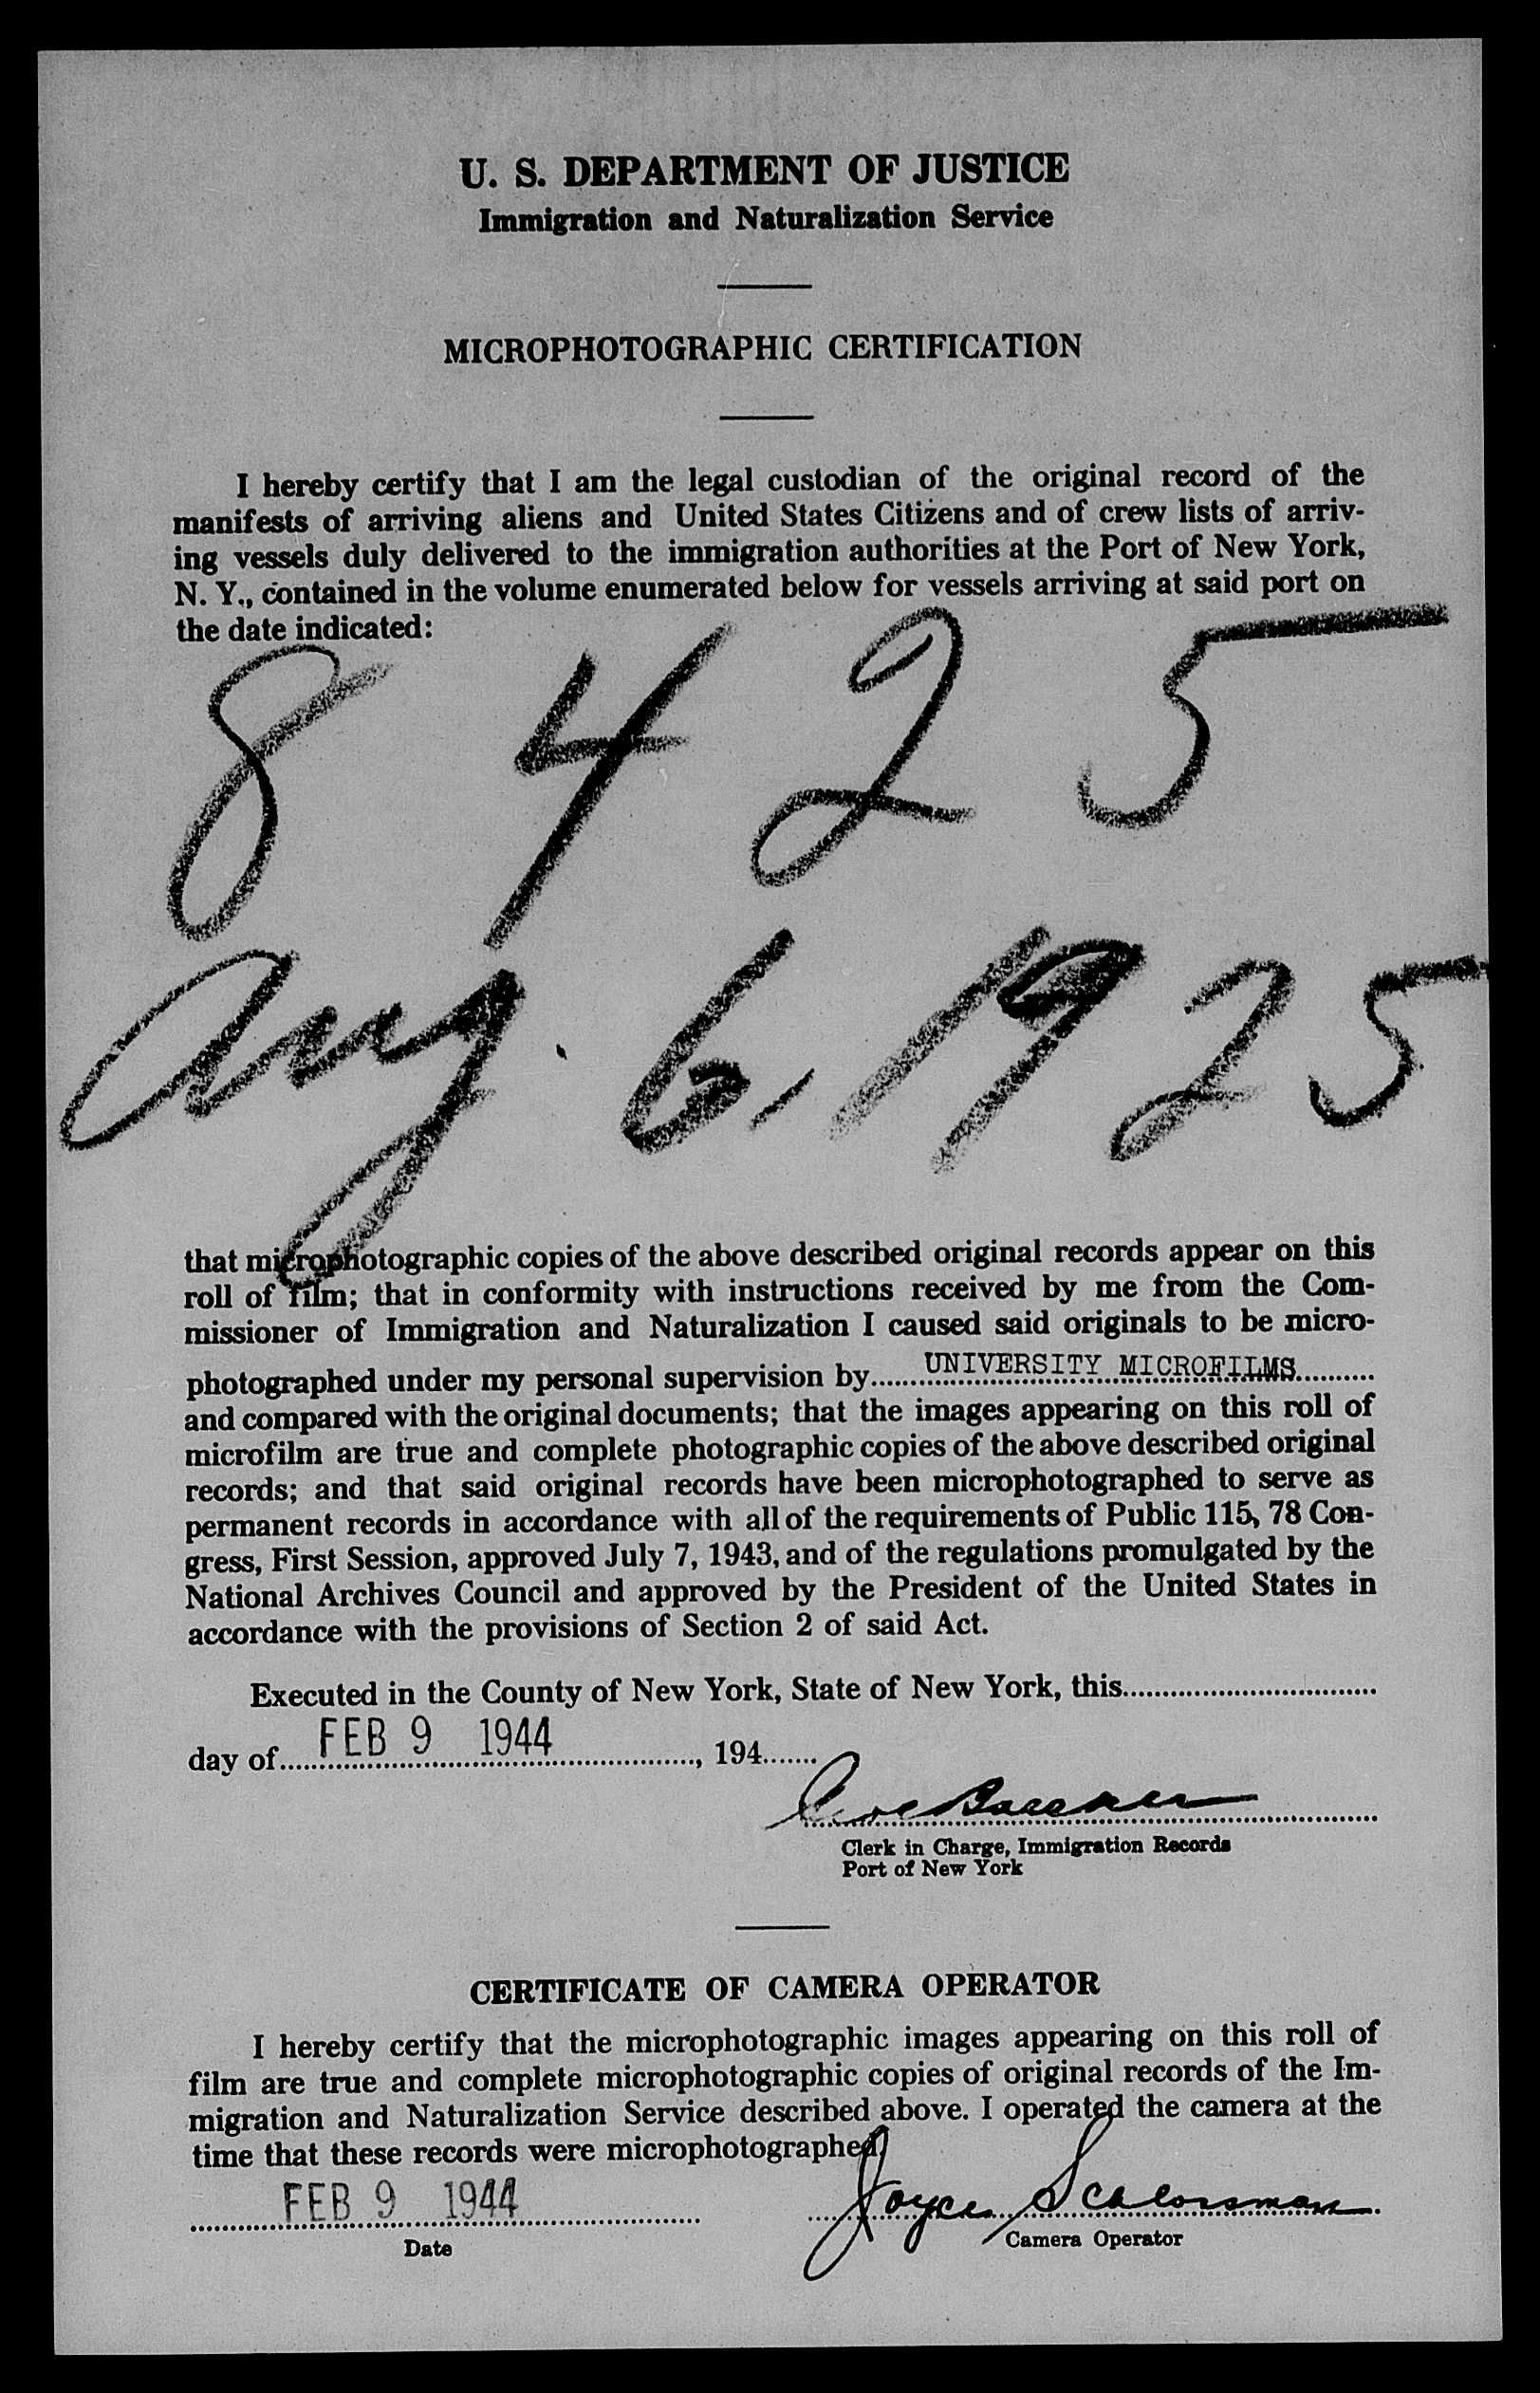 U. S. DEPARTMENT OF JUSTICE
Immigration and Naturalization Service
MICROPHOTOGRAPHIC CERTIFICATION
I hereby certify that I am the legal custodian of the original record of the
manifests of arriving aliens and United States Citizens and of crew lists of arriv-
ing vessels duly delivered to the immigration authorities at the Port of New York,
N. Y., contained in the volume enumerated below for vessels arriving at said port on
the date indicated:
8 4 2 5
Aug. 6, 1925
that microphotographic copies of the above described original records appear on this
roll of film; that in conformity with instructions received by me from the Com-
missioner of Immigration and Naturalization I caused said originals to be micro-
photographed under my personal supervision by UNIVERSITY MICROFILMS
and compared with the original documents; that the images appearing on this roll of
microfilm are true and complete photographic copies of the above described original
records; and that said original records have been microphotographed to serve as
permanent records in accordance with all of the requirements of Public 115, 78 Con-
gress, First Session, approved July 7, 1943, and of the regulations promulgated by the
National Archives Council and approved by the President of the United States in
accordance with the provisions of Section 2 of said Act.
Executed in the County of New York, State of New York, this
day of FEB 9 1944, 194
Clerk in Charge, Immigration Records
Port of New York
CERTIFICATE OF CAMERA OPERATOR
I hereby certify that the microphotographic images appearing on this roll of
film are true and complete microphotographic copies of original records of the Im-
migration and Naturalization Service described above. I operated the camera at the
time that these records were microphotographed.
FEB 9 1944 Joyce Schlossman
Date Camera Operator